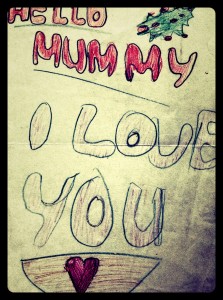 HELLO
MUMMY
I LOVE
YOU